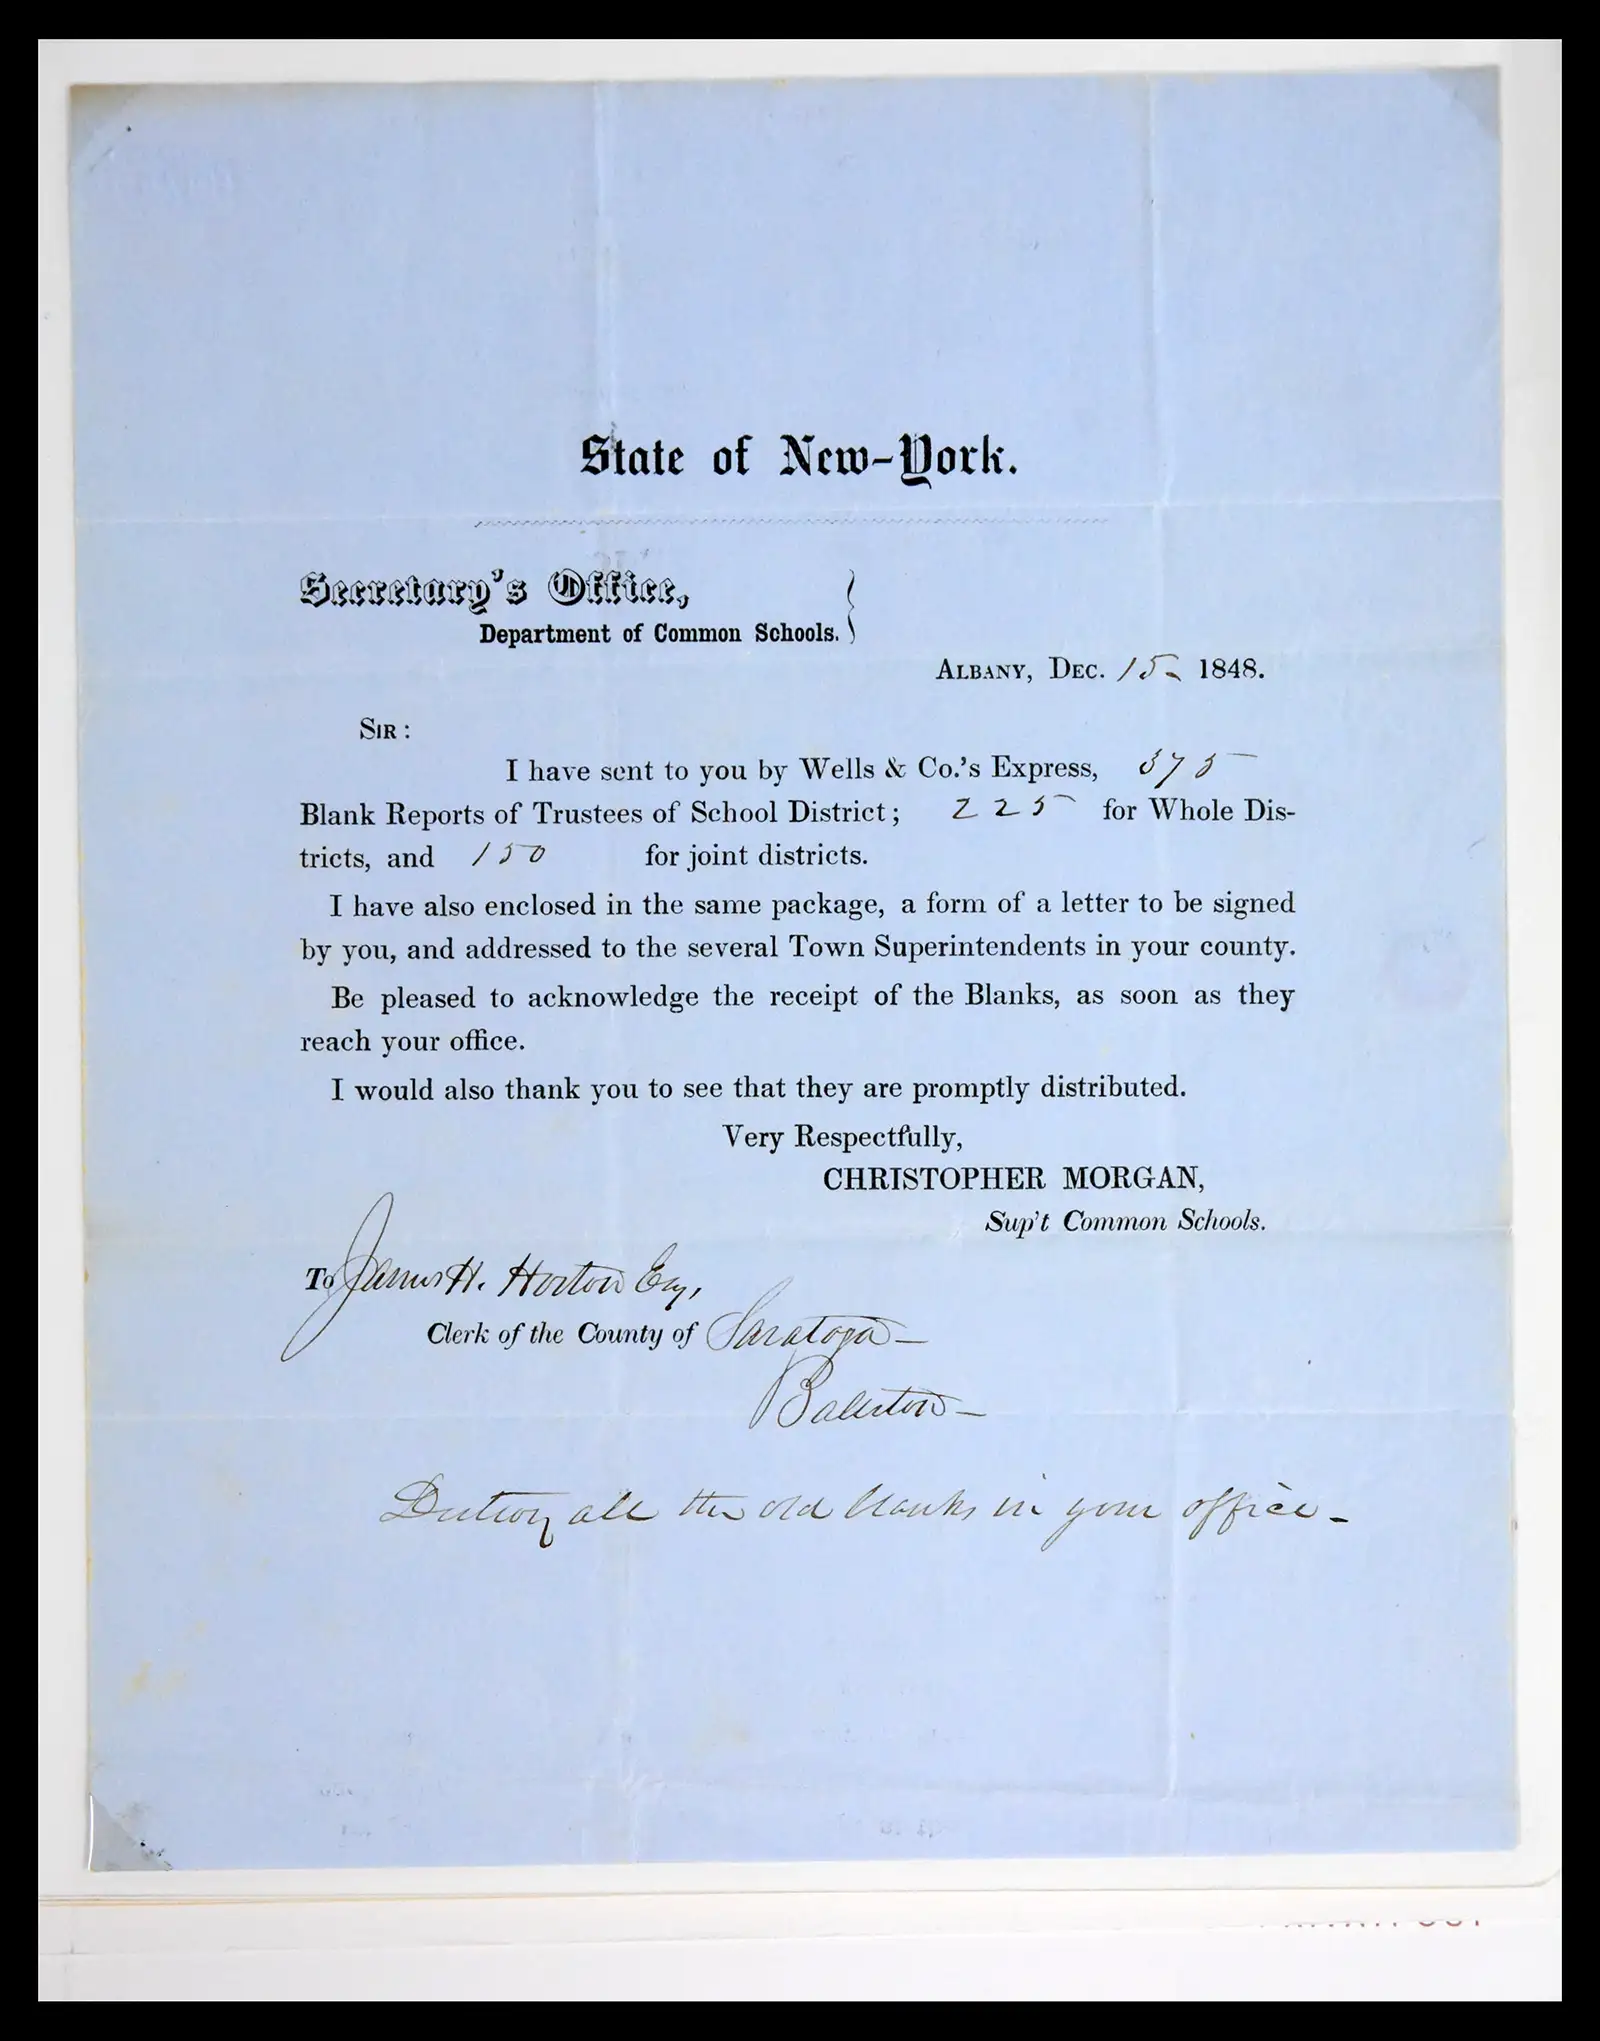 State of New-York.
Secretary's Office,
Department of Common Schools.
ALBANY, DEC. 15. 1848.
SIR:
I have sent to you by Wells & Co.'s Express, 375
Blank Reports of Trustees of School District; 225 for Whole Dis-
tricts, and 150 for joint districts.
I have also enclosed in the same package, a form of a letter to be signed
by you, and addressed to the several Town Superintendents in your county.
Be pleased to acknowledge the receipt of the Blanks, as soon as they
reach your office.
I would also thank you to see that they are promptly distributed.
Very Respectfully,
CHRISTOPHER MORGAN,
Sup't Common Schools.
To James H. Horton Esq,
Clerk of the County of Saratoga —
Balston —
Destroy all the old blanks in your office -